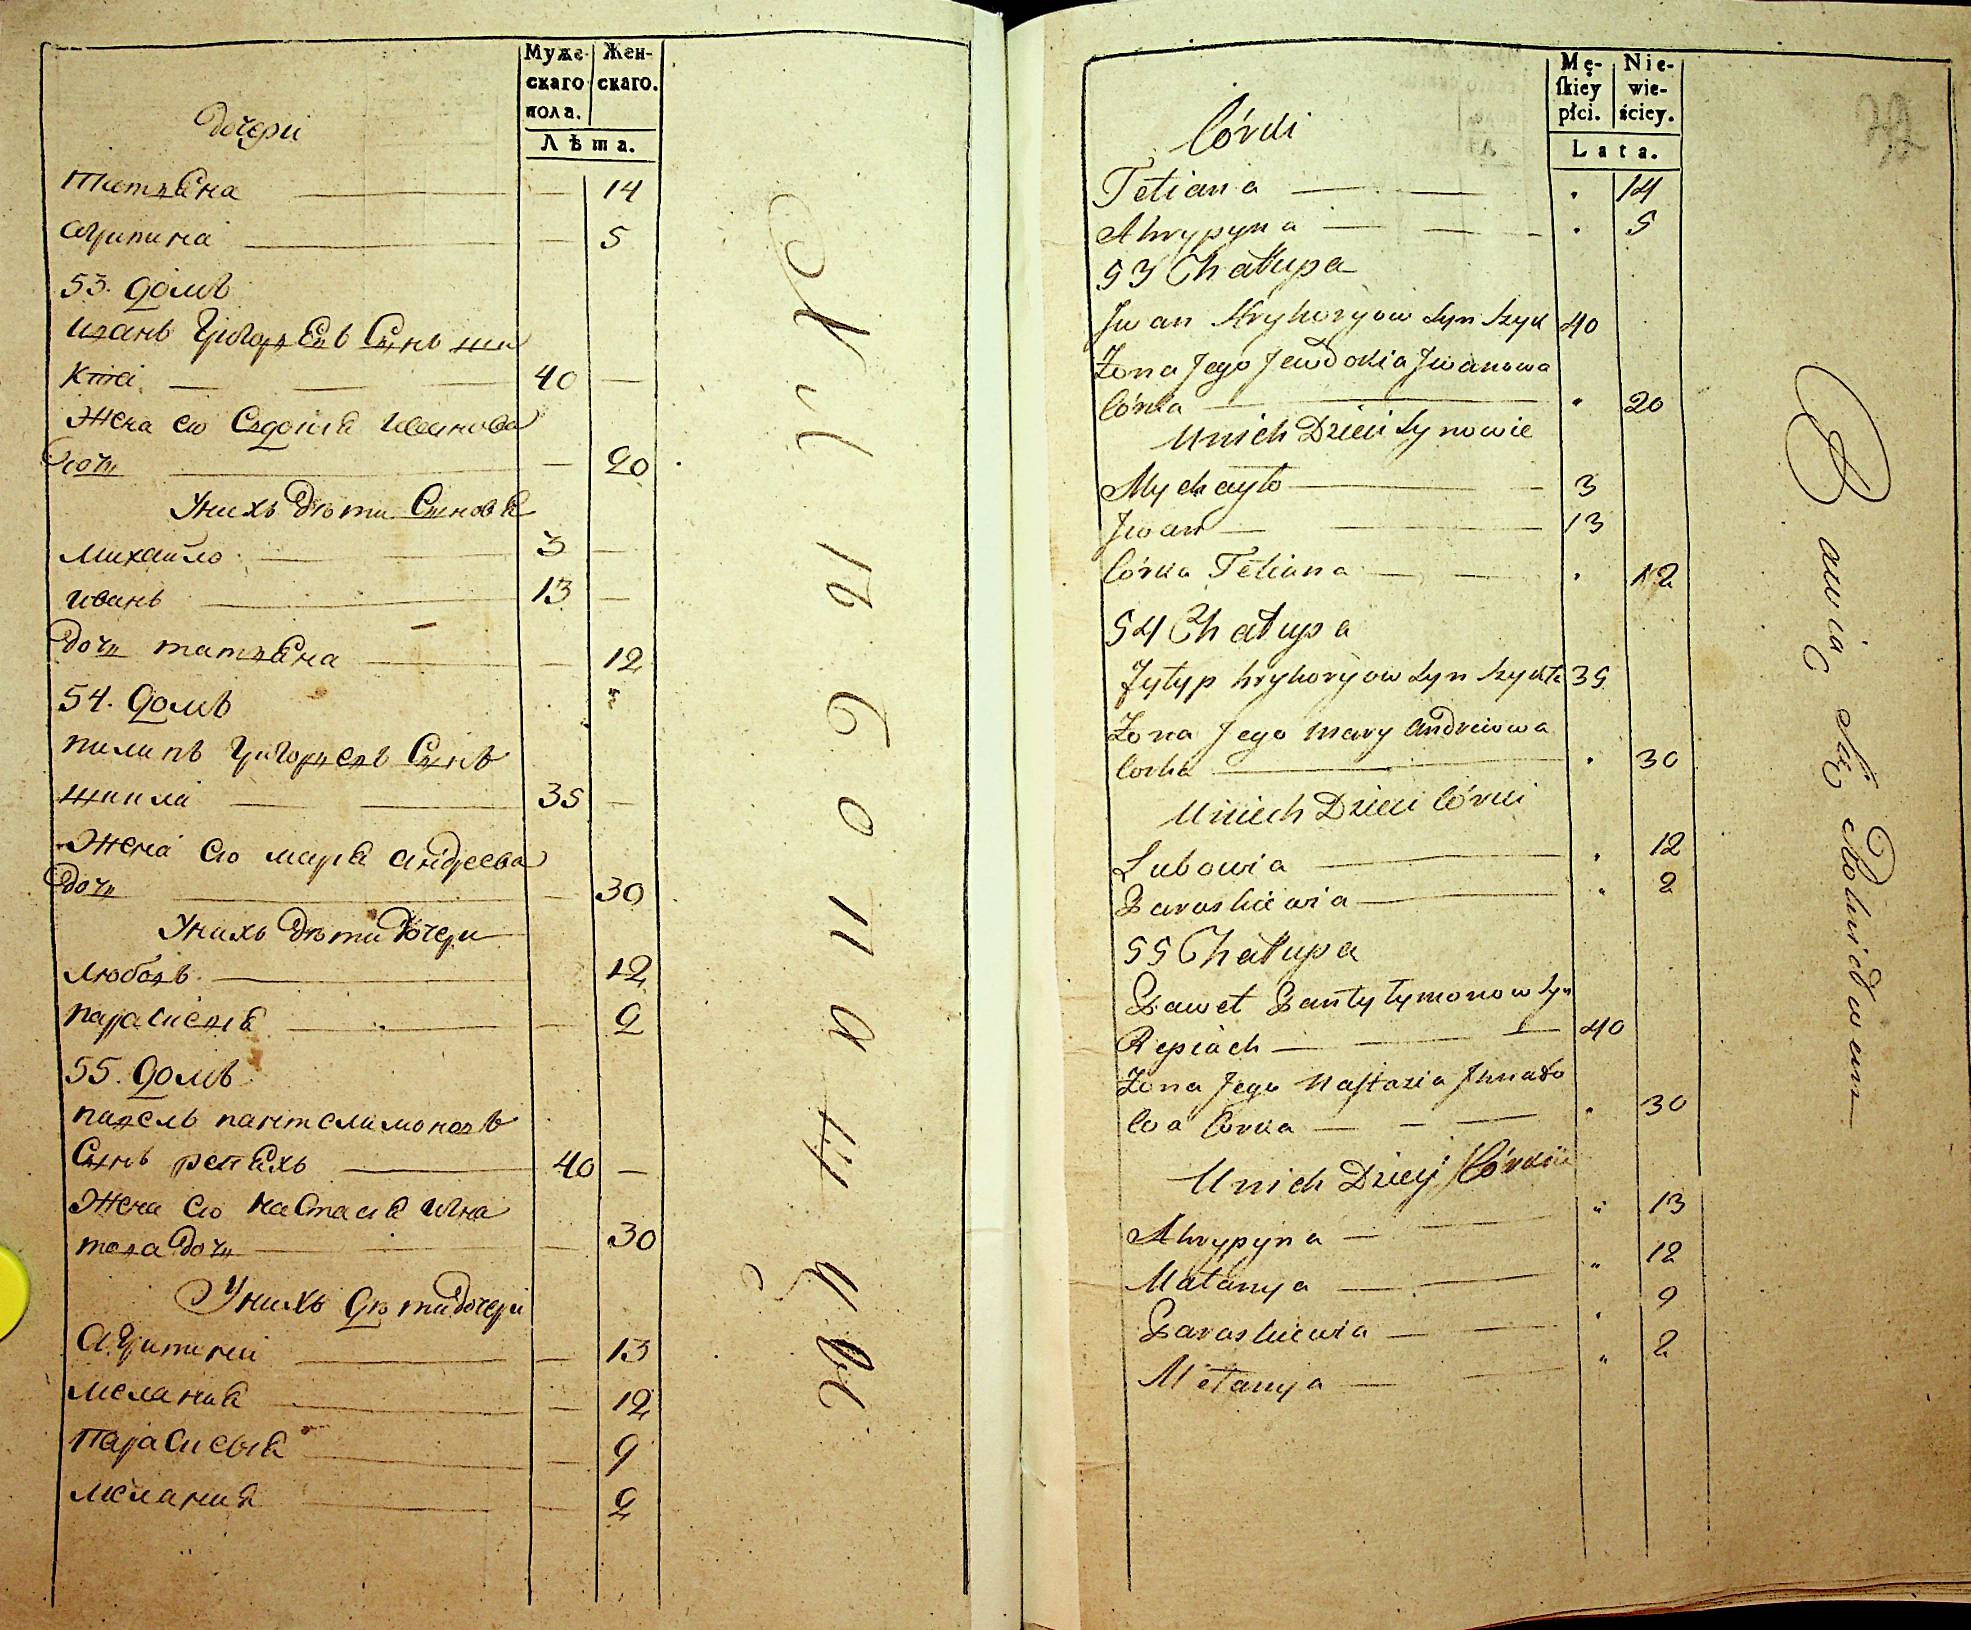 Муже-
скаго
пола.
Жен-
скаго.
Лѣта.
Дочери
Татѣяна 14
Агрипина 5
53. Домъ
Иванъ Григорьевъ Сынъ
40
Жена его Евдокия Иванова
дочь 20
У нихъ дѣти Синовя
Михайло 3
Иванъ 13
Дочь татьяна 12
54. Домъ
пилипъ Григорьевъ Сынъ
35
Жена его марья андреева
дочь 30
У нихъ дѣти Дочери
Любовъ 12
параскевия 2
55. Домъ
павелъ пантелимоновъ
Сынъ репяхъ 40
Жена его настасия Игна
това дочь 30
У нихъ дѣти дочери
Агрипина 13
мелания 12
Параскевия 9
мелания 2
Mę-
ſkiey
płci.
Nie-
wie-
ściey.
Lata.
Córki
Tetiana 14
Ahrypyna 5
53 Chałupa
Jwan Hryhoryow Syn 40
Żona Jego Jewdokia Jwanowa
Córka 20
Unich Dzieci Synowie
Mychayło 3
Jwan 13
Córka Tetiana 12
54 Chałupa
Fyłyp hryhoryow Syn 35
Żona Jego mary andreiowa
Corka 30
Uniech Dzieci Córki
Lubowia 12
Paraskiewia 2
55 Chałupa
Paweł Pantyłymonow Syn
Repiach 40
Żona Jego Naſtazia
Corka 30
Unich Dziecy Córki
Ahrypyna 13
Małanya 12
Paraskiewia 9
Mełanya 2